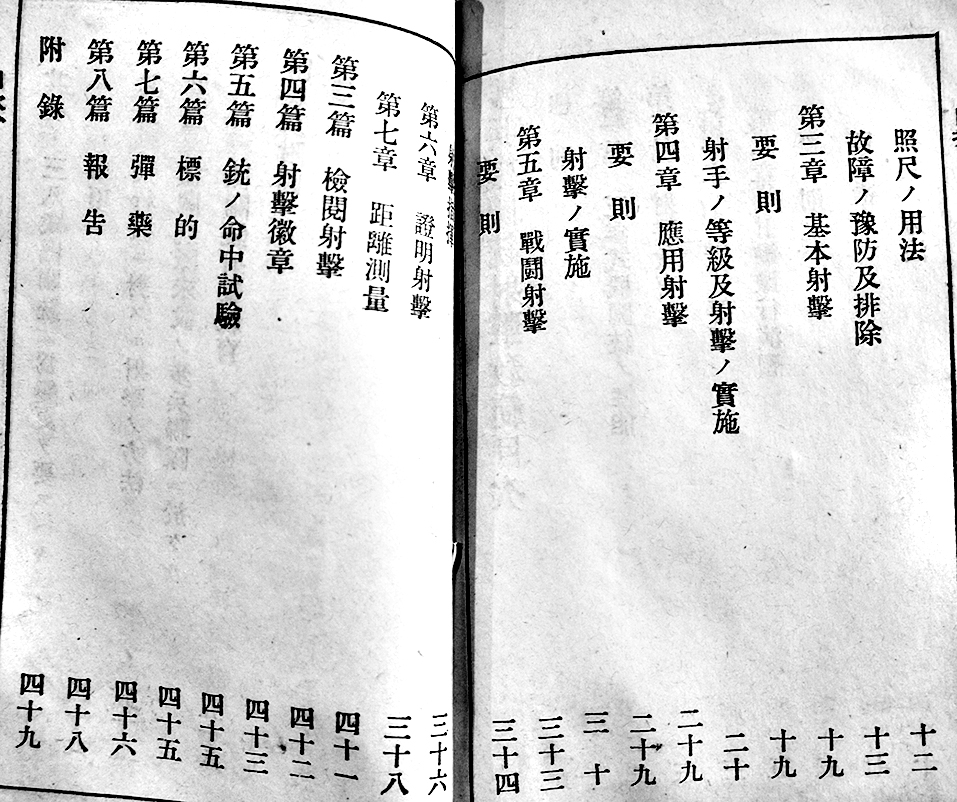 照尺ノ用法 十二
故障ノ豫防及排除 十三
第三章 基本射擊 十九
要則 十九
射手ノ等級及射擊ノ實施 二十
第四章 應用射擊 二十九
要則 二十九
射擊ノ實施 三十
第五章 戰鬪射擊 三十三
要則 三十四
第六章 證明射擊 三十六
第七章 距離測量 三十八
第三篇 檢閱射擊 四十一
第四篇 射擊徽章 四十二
第五篇 銃ノ命中試驗 四十三
第六篇 標的 四十五
第七篇 彈藥 四十五
第八篇 報告 四十六
附錄 四十八
四十九